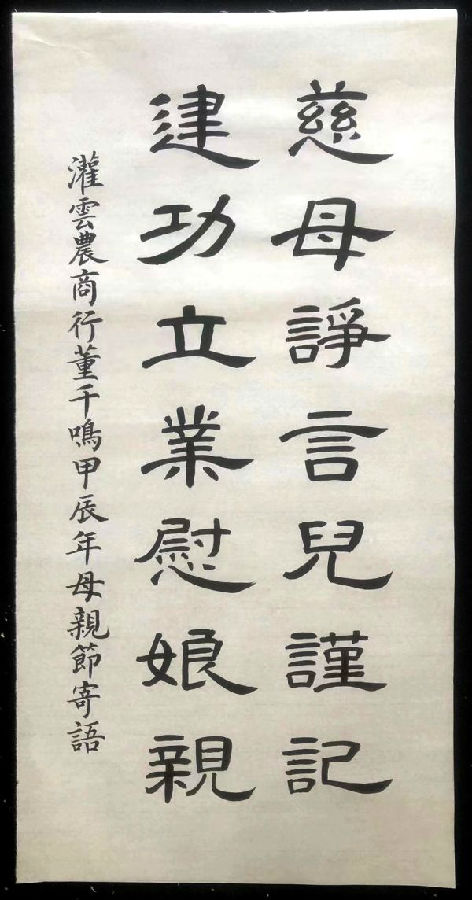 慈母諍言兒謹記
建功立業慰娘親
灌雲農商行董千鳴甲辰年母親節寄語